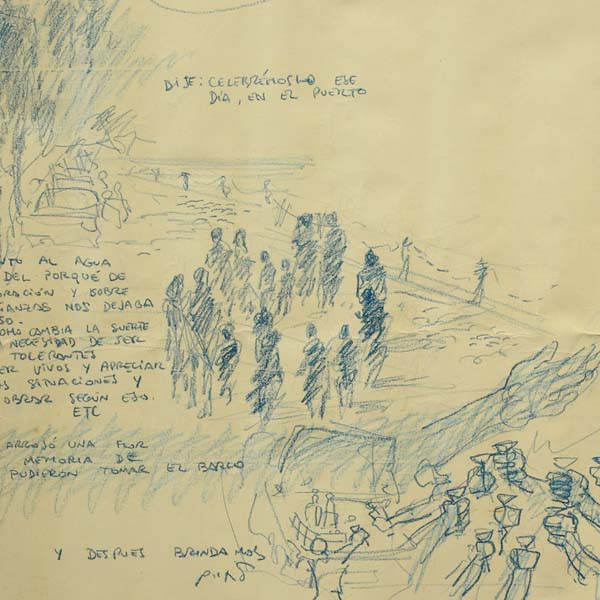 DIJE: CELEBRÉMOSLO ESE
DÍA, EN EL PUERTO
NTO AL AGUA
DEL PORQUÉ DE
RACIÓN Y SOBRE
IANZAS NOS DEJABA
SO.
OMO CAMBIA LA SUERTE
NECESIDAD DE SER
TOLERANTES
ER VIVOS Y APRECIAR
S SITUACIONES Y
OBRAR SEGÚN ESO.
ETC
ARROJÓ UNA FLOR
MEMORIA DE
PUDIERON TOMAR EL BARCO
Y DESPUES BRINDAMOS